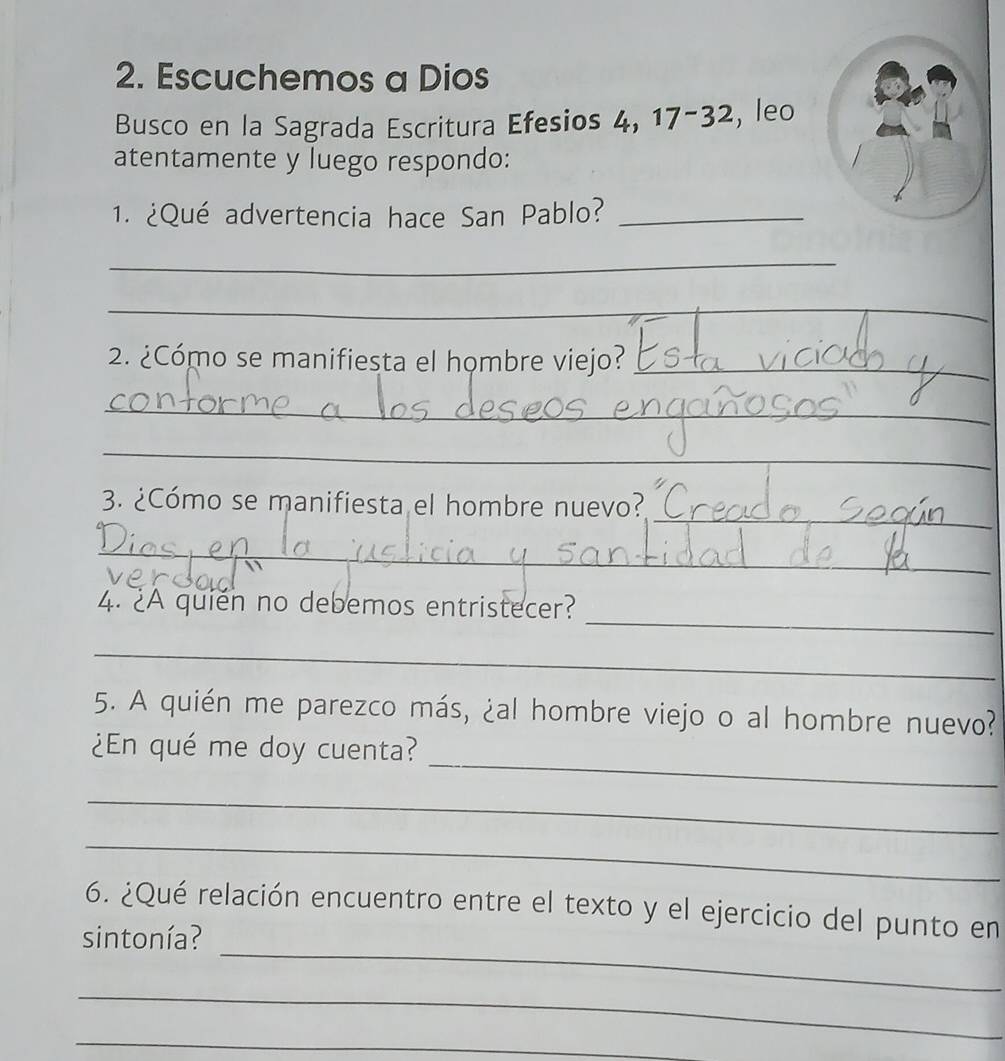 2. Escuchemos a Dios
Busco en la Sagrada Escritura Efesios 4, 17-32, leo
atentamente y luego respondo:
1. ¿Qué advertencia hace San Pablo?
2. ¿Cómo se manifiesta el hombre viejo? "Esta viciado y
conforme a los deseos engañosos"
3. ¿Cómo se manifiesta el hombre nuevo? "Creado, según
Dios, en la justicia y santidad de la
verdad"
4. ¿A quién no debemos entristecer?
5. A quién me parezco más, ¿al hombre viejo o al hombre nuevo?
¿En qué me doy cuenta?
6. ¿Qué relación encuentro entre el texto y el ejercicio del punto en
sintonía?